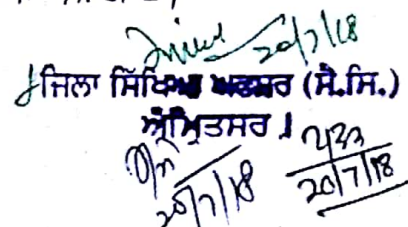 20/7/18
ਜਿਲਾ ਸਿੱਖਿਆ ਅਫਸਰ (ਸੈ.ਸਿ.)
ਅੰਮ੍ਰਿਤਸਰ।
20/7/18
20/7/18